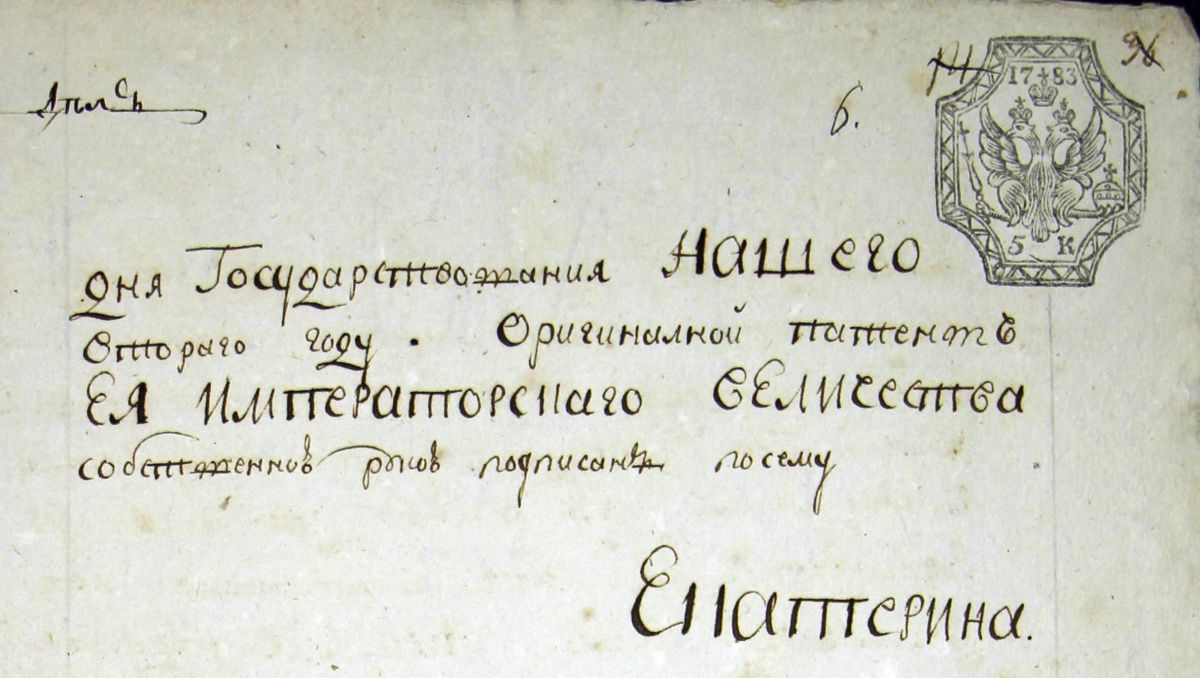 6.
1783
5 К
дня Государствования Нашего
второго году. Оригиналной патентъ
ЕЯ ИМПЕРАТОРСКАГО ВЕЛИЧЕСТВА
собственною рукою подписанъ по сему
Екатерина.